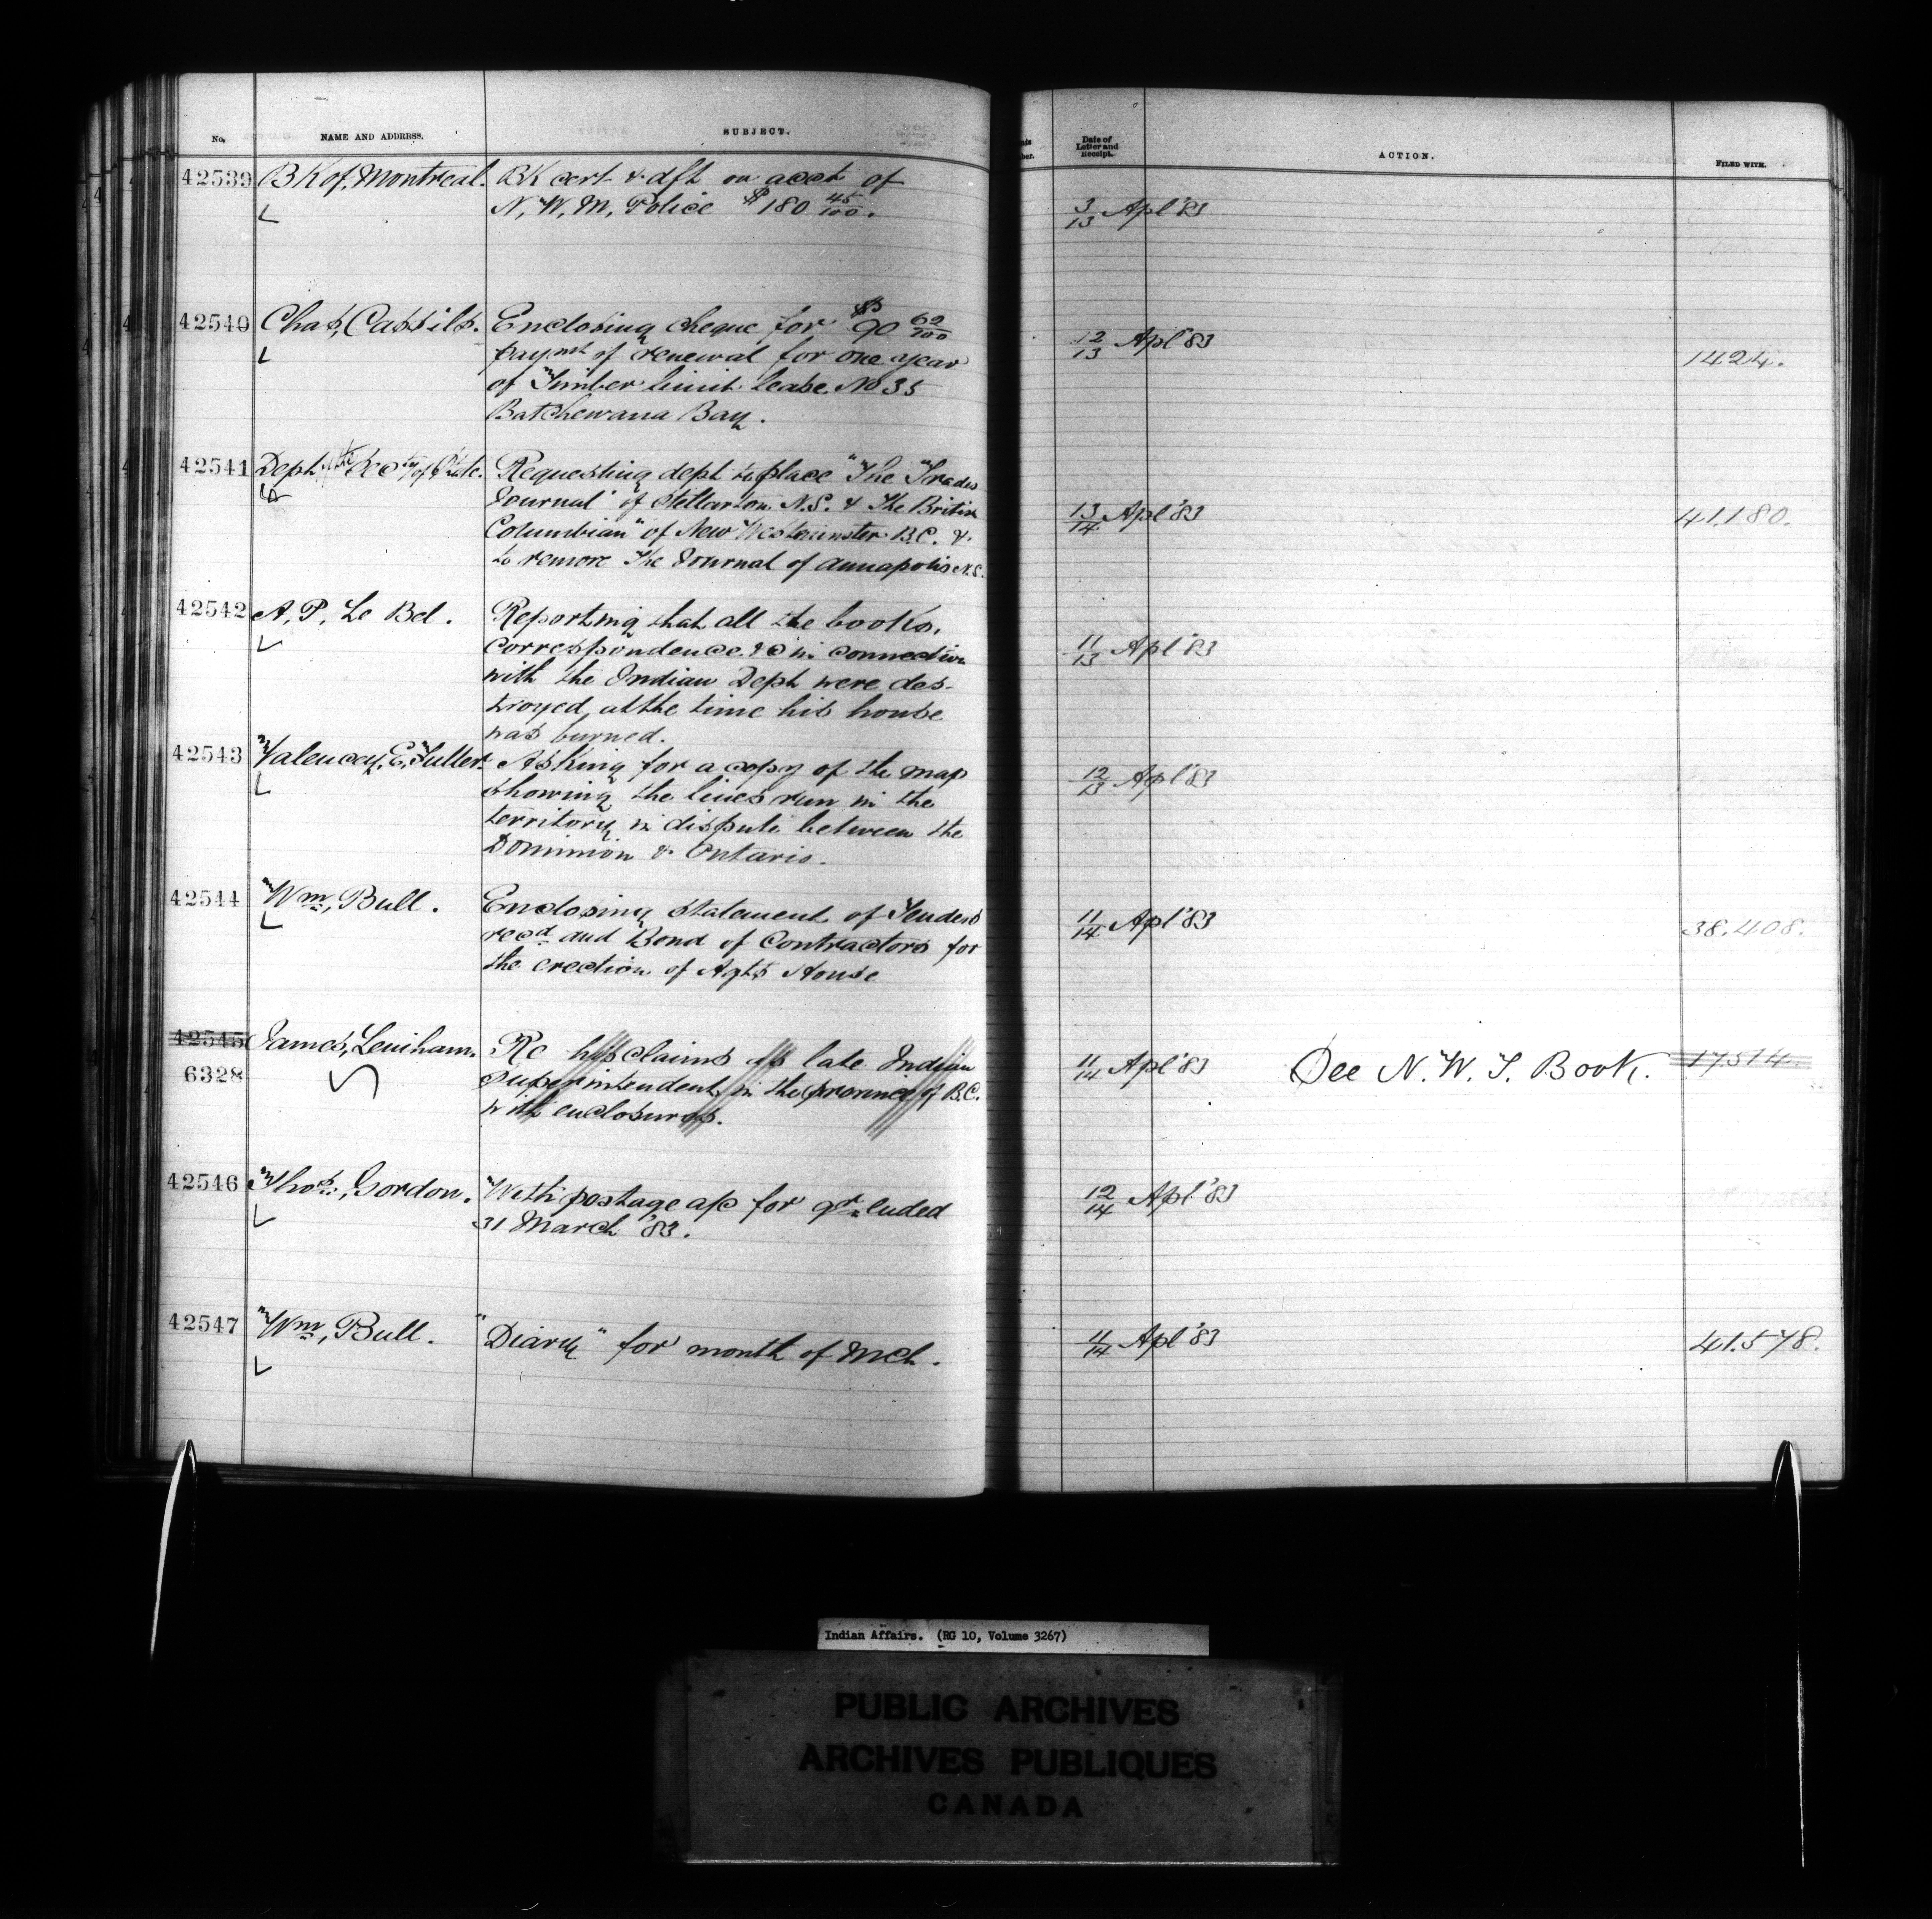 No. NAME AND ADDRESS. SUBJECT. Date of Letter and Receipt. ACTION. FILED WITH.
42539 BK of Montreal. BK cert & dft on acct of
N. W. M. Police $180 45/100. 3/13 Apl '83
42540 Chas, Cassils. Enclosing cheque for $90 62/100
paymt of renewal for one year 12/13 Apl '83 1424.
of Timber limit lease No 35
Batchewana Bay.
42541 Dept of Secty of State. Requesting dept to place "The Trades
Journal" of Stellarton N.S. & The British 13/14 Apl '83 41.180.
Columbian" of New Westminster B.C. &
to remove The Journal of Annapolis N.S.
42542 A, P, Le Bel. Reporting that all the books,
correspondence &c in connection 11/13 Apl '83
with the Indian Dept were des-
troyed at the time his house
was burned.
42543 Valency, E, Fuller. Asking for a copy of the map
showing the lines run in the 12/13 Apl '83
territory in dispute between the
Dominion & Ontario.
42544 Wm, Bull. Enclosing statement of Tenders
recd and Bond of Contractors for 11/14 Apl '83 38.408.
the erection of Agts House
42545 James, Lenihan. Re his claims as late Indian
6328 Superintendent in the province of B.C. 11/14 Apl '83 See N. W. T. Book. 17.514.
with enclosures.
42546 Thos, Gordon. With postage a/c for qr ended
31 March '83. 12/14 Apl '83
42547 Wm, Bull. "Diary" for month of Mch. 11/14 Apl '83 41.578.
Indian Affairs. (RG 10, Volume 3267)
PUBLIC ARCHIVES
ARCHIVES PUBLIQUES
CANADA